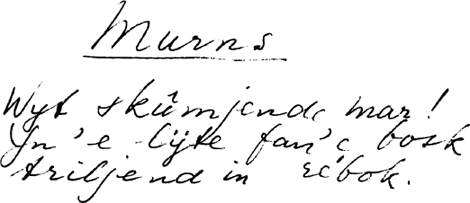 Murns
Wyt skûmjende mar!
Yn 'e lijte fan 'e bosk
triljend in reebok.